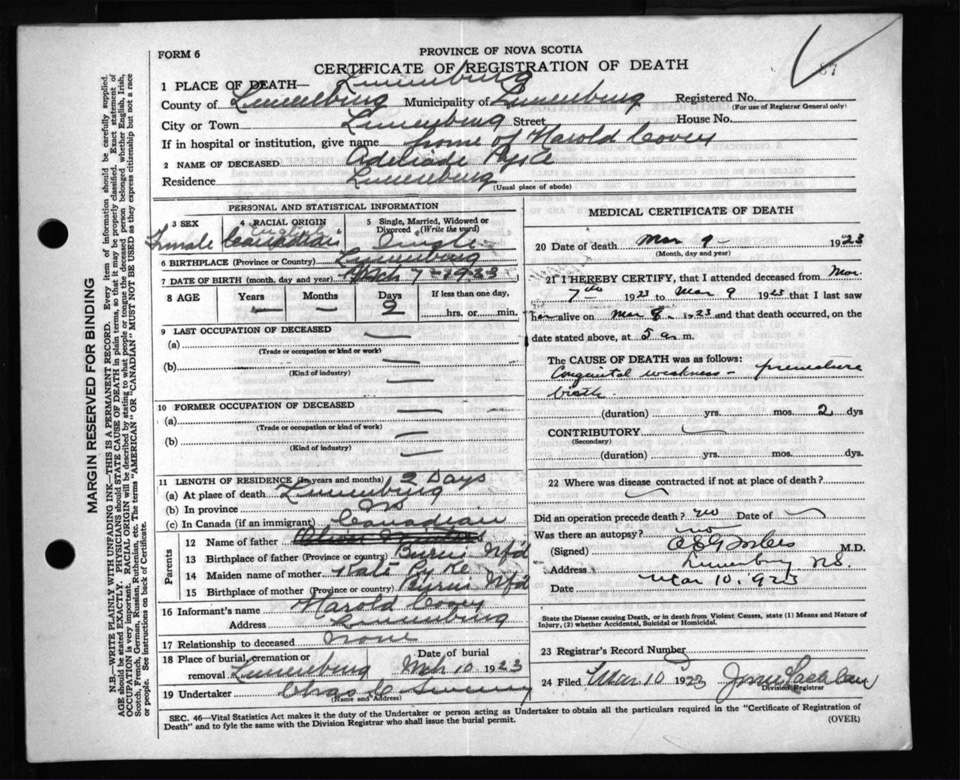 FORM 6
PROVINCE OF NOVA SCOTIA
CERTIFICATE OF REGISTRATION OF DEATH
87
1 PLACE OF DEATH— Lunenburg
County of Lunenburg Municipality of Lunenburg Registered No.
(For use of Registrar General only)
City or Town Lunenburg Street House No.
If in hospital or institution, give name home of Harold Covey
2 NAME OF DECEASED Adeliade Pyke
Residence Lunenburg
(Usual place of abode)
PERSONAL AND STATISTICAL INFORMATION
3 SEX 4 RACIAL ORIGIN 5 Single, Married, Widowed or Divorced (Write the word)
Female English Canadian Single
6 BIRTHPLACE (Province or Country) Lunenburg
7 DATE OF BIRTH (month, day and year) Mch 7 - 1923
8 AGE Years Months Days If less than one day,
— — 2 hrs. or min.
9 LAST OCCUPATION OF DECEASED
(a) —
(Trade or occupation or kind or work)
(b) —
(Kind of industry)
10 FORMER OCCUPATION OF DECEASED
(a) —
(Trade or occupation or kind or work)
(b) —
(Kind of industry)
11 LENGTH OF RESIDENCE (In years and months) 2 Days
(a) At place of death Lunenburg
(b) In province NS
(c) In Canada (if an immigrant) Canadian
Parents
12 Name of father
13 Birthplace of father (Province or country) Burin Nfd
14 Maiden name of mother Kate Pyke
15 Birthplace of mother (Province or country) Burin Nfd
16 Informant's name Harold Covey
Address Lunenburg
17 Relationship to deceased None
18 Place of burial, cremation or removal Lunenburg Date of burial Mch 10 1923
19 Undertaker Chas
(Name and Address)
MEDICAL CERTIFICATE OF DEATH
20 Date of death Mar 9 - 1923
(Month, day and year)
21 I HEREBY CERTIFY, that I attended deceased from Mar.
7th 1923 to Mar 9 1923 that I last saw
her alive on Mar 8. 1923 and that death occurred, on the
date stated above, at 5 a m.
The CAUSE OF DEATH was as follows:
Congenital weakness - premature
birth.
(duration) yrs. mos. 2 dys
CONTRIBUTORY
(Secondary)
(duration) yrs. mos. dys
22 Where was disease contracted if not at place of death?
Did an operation precede death? no Date of
Was there an autopsy? no
(Signed) M.D.
Address Lunenburg NS.
Date Mar 10, 1923
State the Disease causing Death, or in death from Violent Causes, state (1) Means and Nature of
Injury, (2) whether Accidental, Suicidal or Homicidal.
23 Registrar's Record Number
24 Filed Mar 10 1923
Division Registrar
SEC. 46—Vital Statistics Act makes it the duty of the Undertaker or person acting as Undertaker to obtain all the particulars required in the "Certificate of Registration of
Death" and to fyle the same with the Division Registrar who shall issue the burial permit.
(OVER)
MARGIN RESERVED FOR BINDING
N.B.—WRITE PLAINLY WITH UNFADING INK—THIS IS A PERMANENT RECORD. Every item of information should be carefully supplied.
AGE should be stated EXACTLY. PHYSICIANS should STATE CAUSE OF DEATH in plain terms, so that it may be properly classified. Exact statement of
OCCUPATION is very important. RACIAL ORIGIN will be described by stating to what people or tongue the deceased person belonged whether English, Irish,
Scotch, French, German, Russian, Ruthenian, etc. The terms "AMERICAN" OR "CANADIAN" MUST NOT BE USED as they express citizenship but not a race
or people. See instructions on back of Certificate.